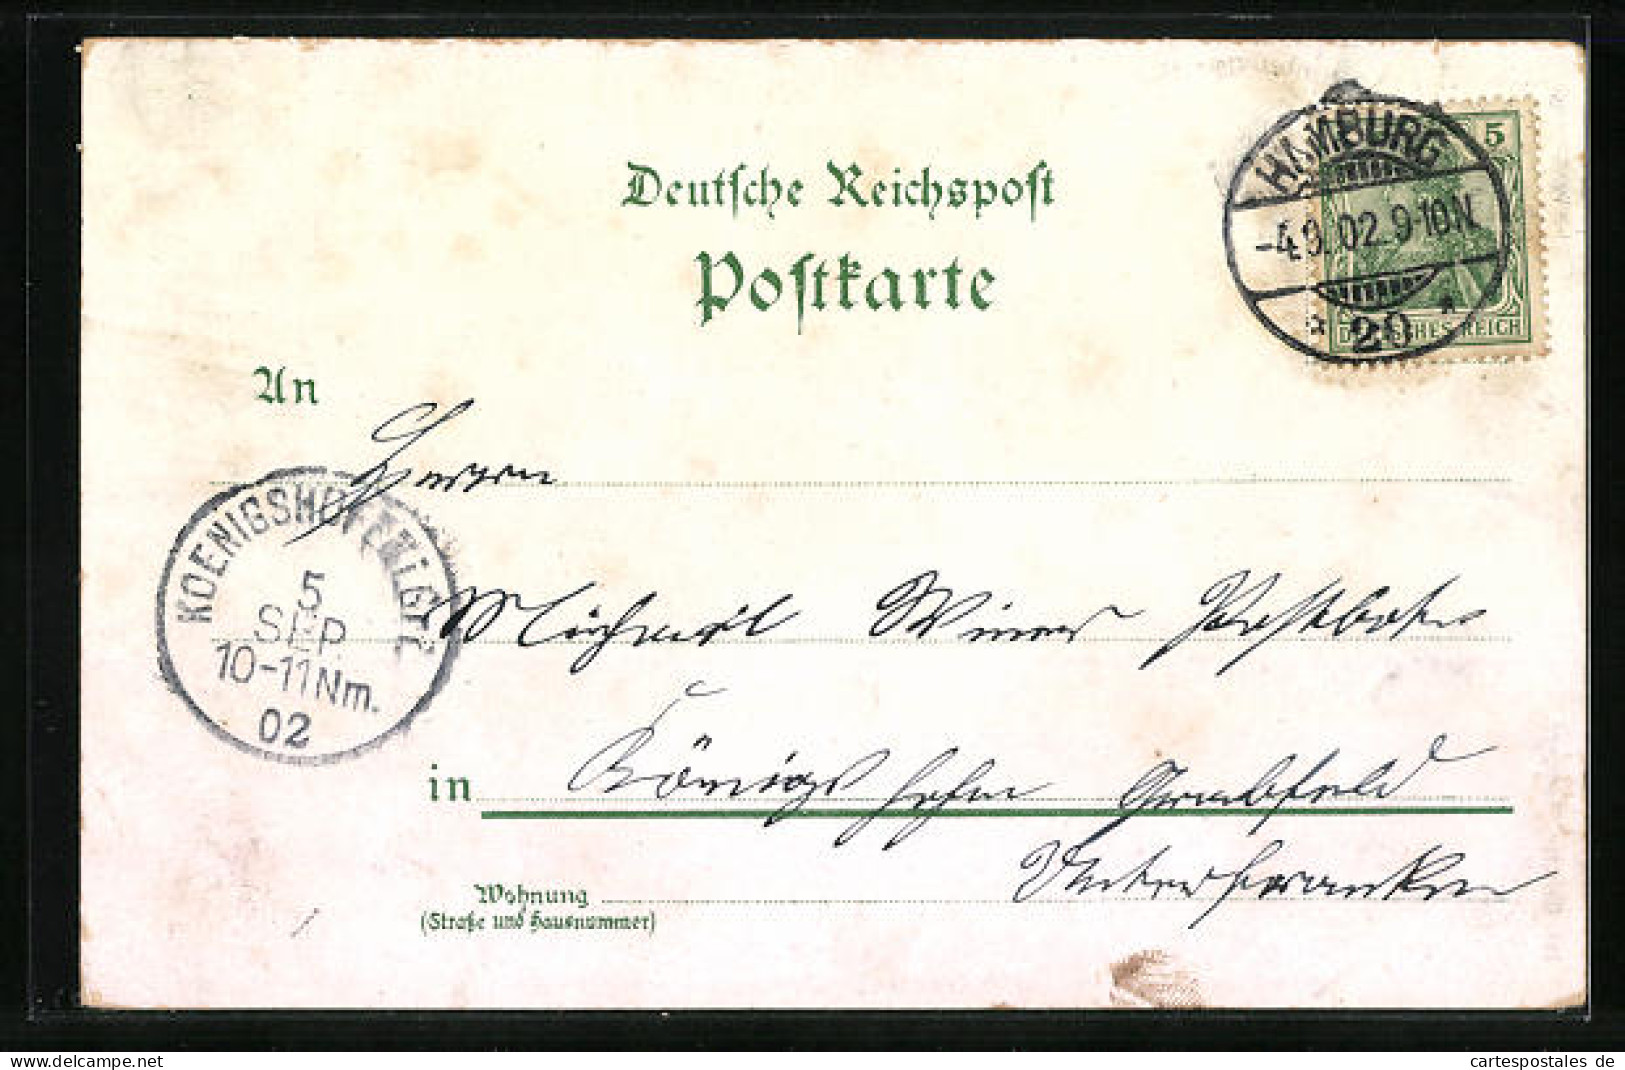 Deutsche Reichspost
Postkarte
HAMBURG
-4.9.02.9-10N.
* 20 *
5
DEUTSCHES REICH
An
Herrn
KOENIGSHOFEN i. GR.
5
SEP
10-11Nm.
02
Michael Wiener Postbote
in Königshofen Grabfeld
Unterfranken
Wohnung
(Straße und Hausnummer)
cartespostales de